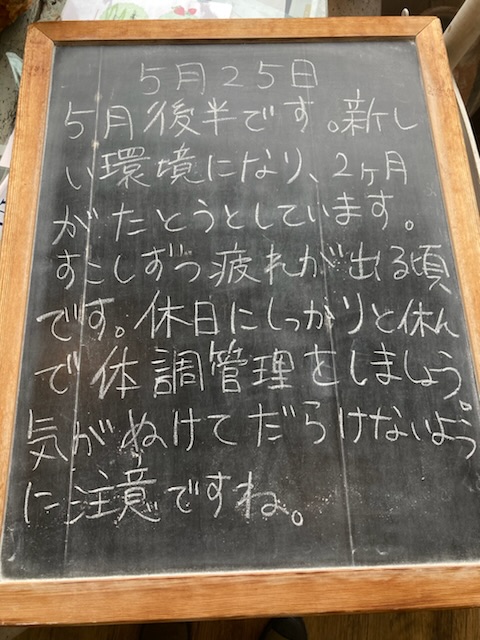 5月25日
5月後半です。新し
い環境になり、2ヶ月
がたとうとしています。
すこしずつ疲れが出る頃
です。休日にしっかりと休ん
で体調管理をしましょう。
気がぬけてだらけないよう
に注意ですね。